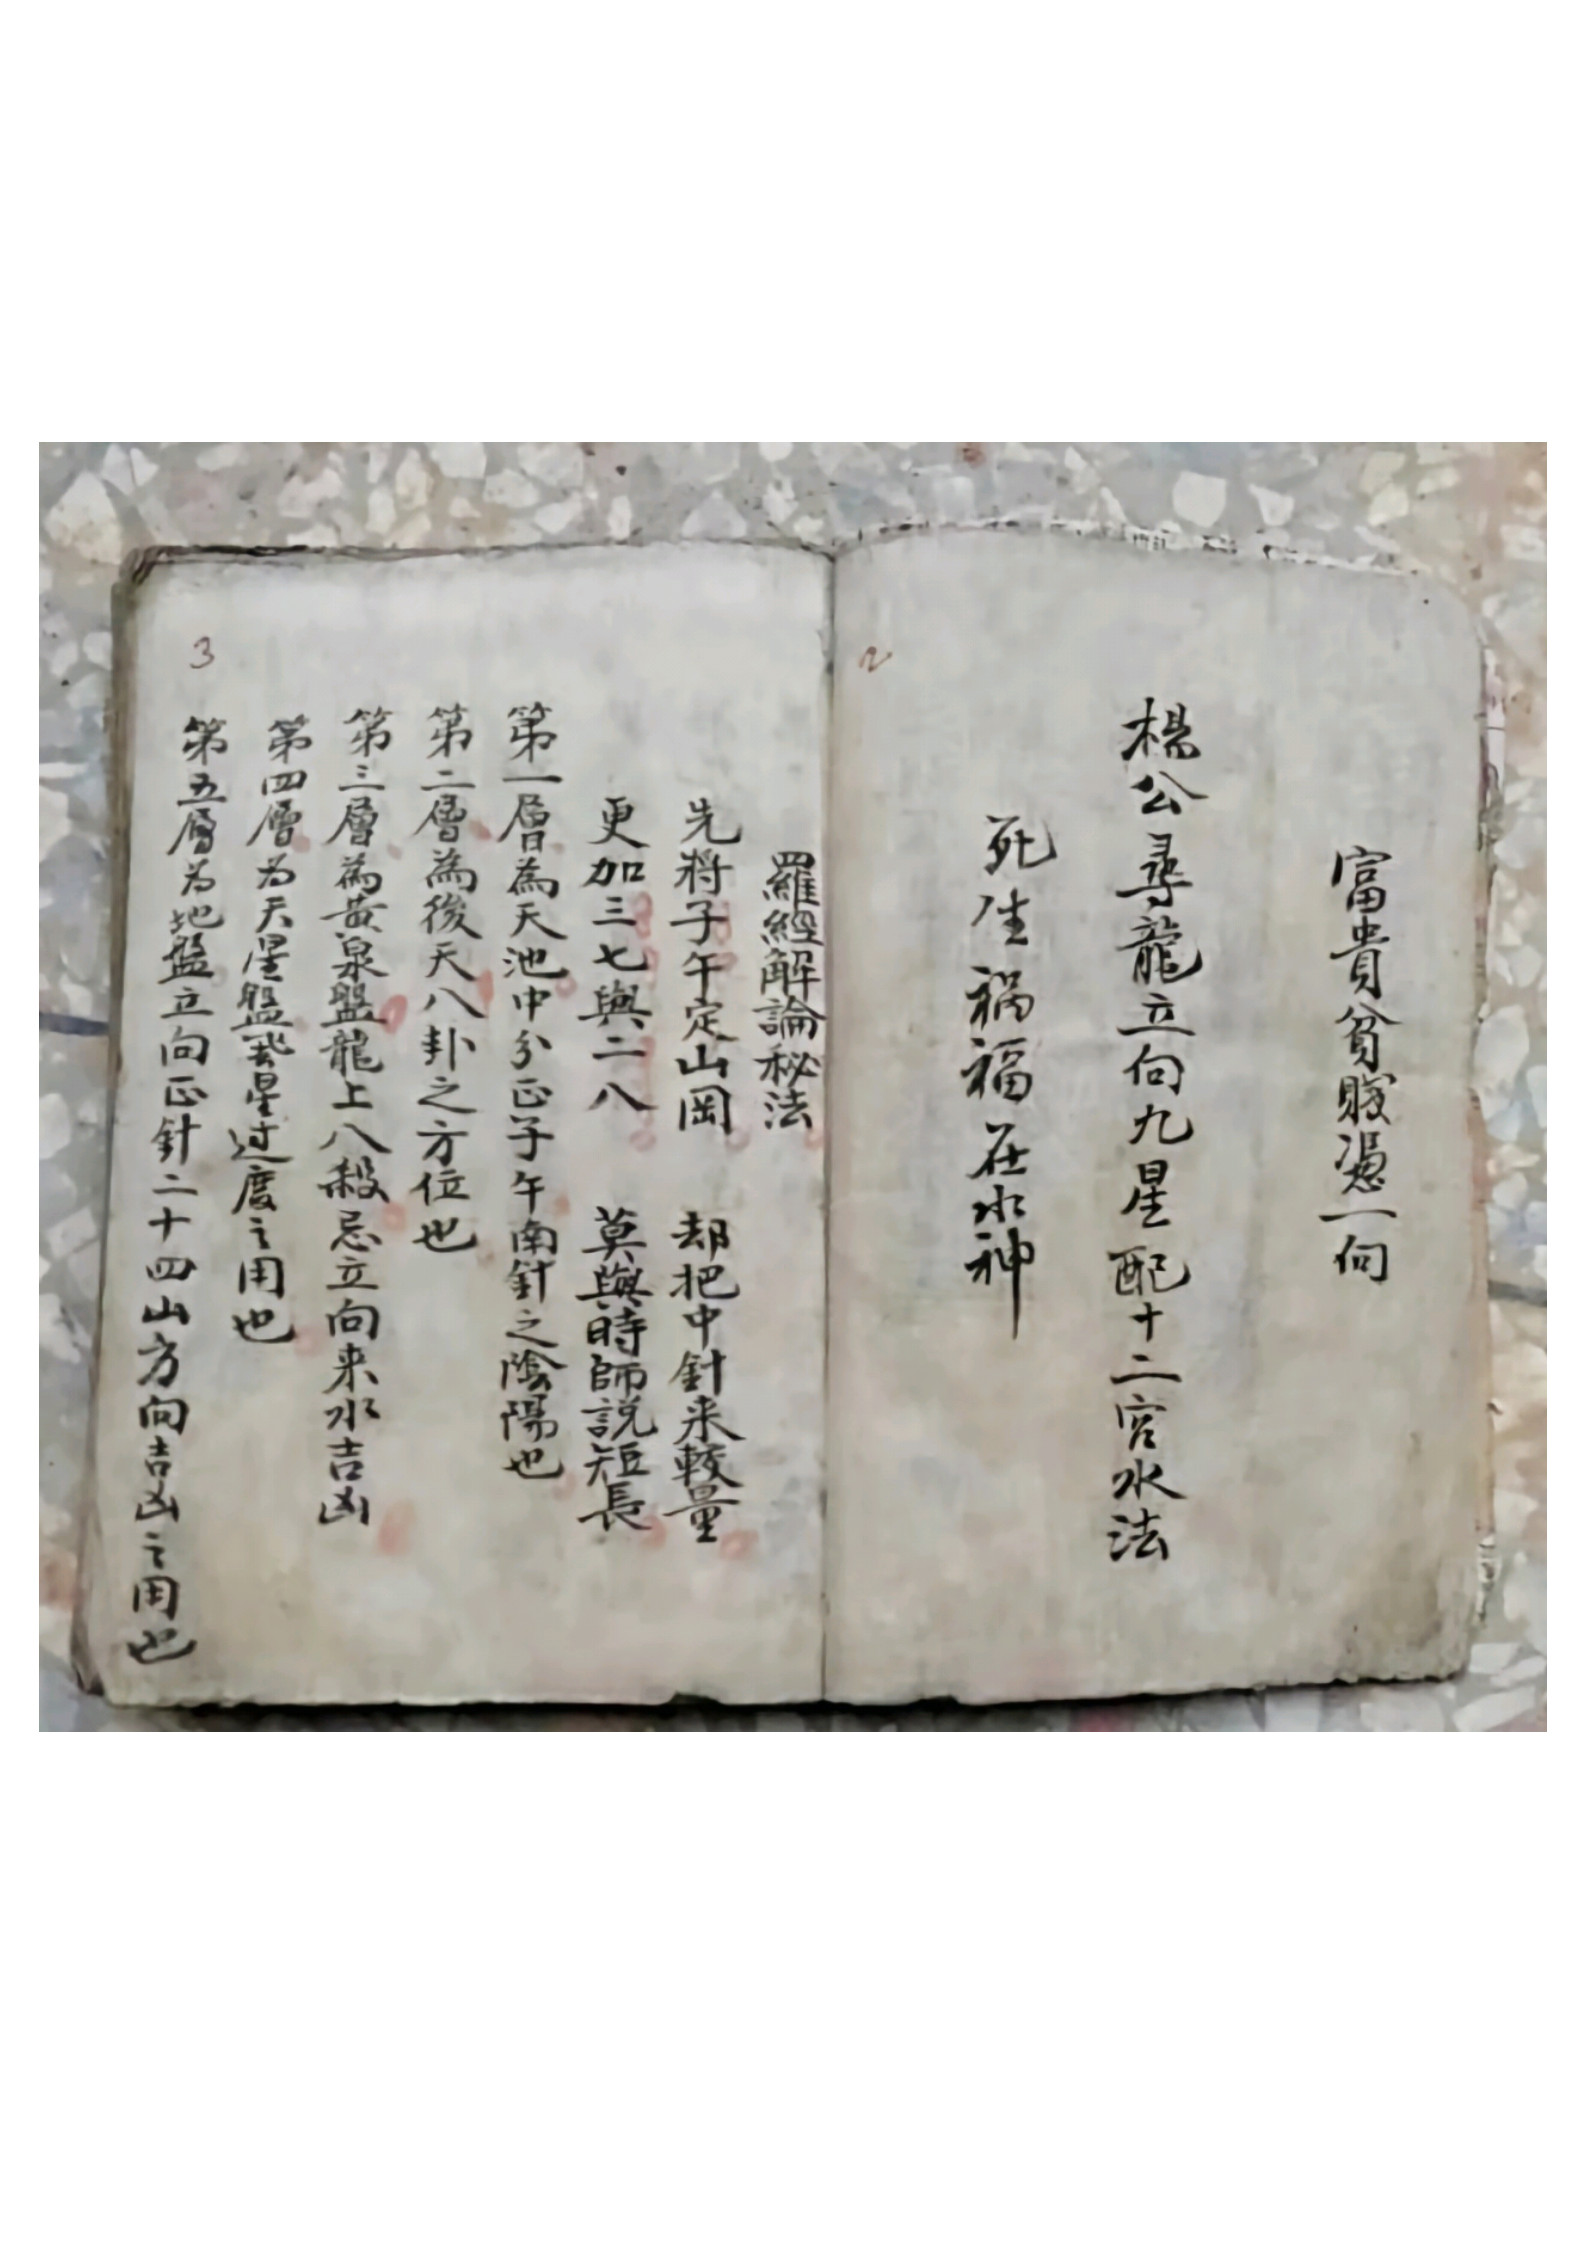 富貴貧賤憑一向
楊公尋龍立向九星配十二宮水法
死生禍福在水神
2
羅經解論秘法
先將子午定山岡 却把中針来較量
更加三七與二八 莫與時師説短長
第一層為天池中分正子午南針之陰陽也
第二層為後天八卦之方位也
第三層為黄泉盤龍上八殺忌立向来水吉凶
第四層为天星盤 星过度之用也
第五層为地盤立向正針二十四山方向吉凶之用也
3